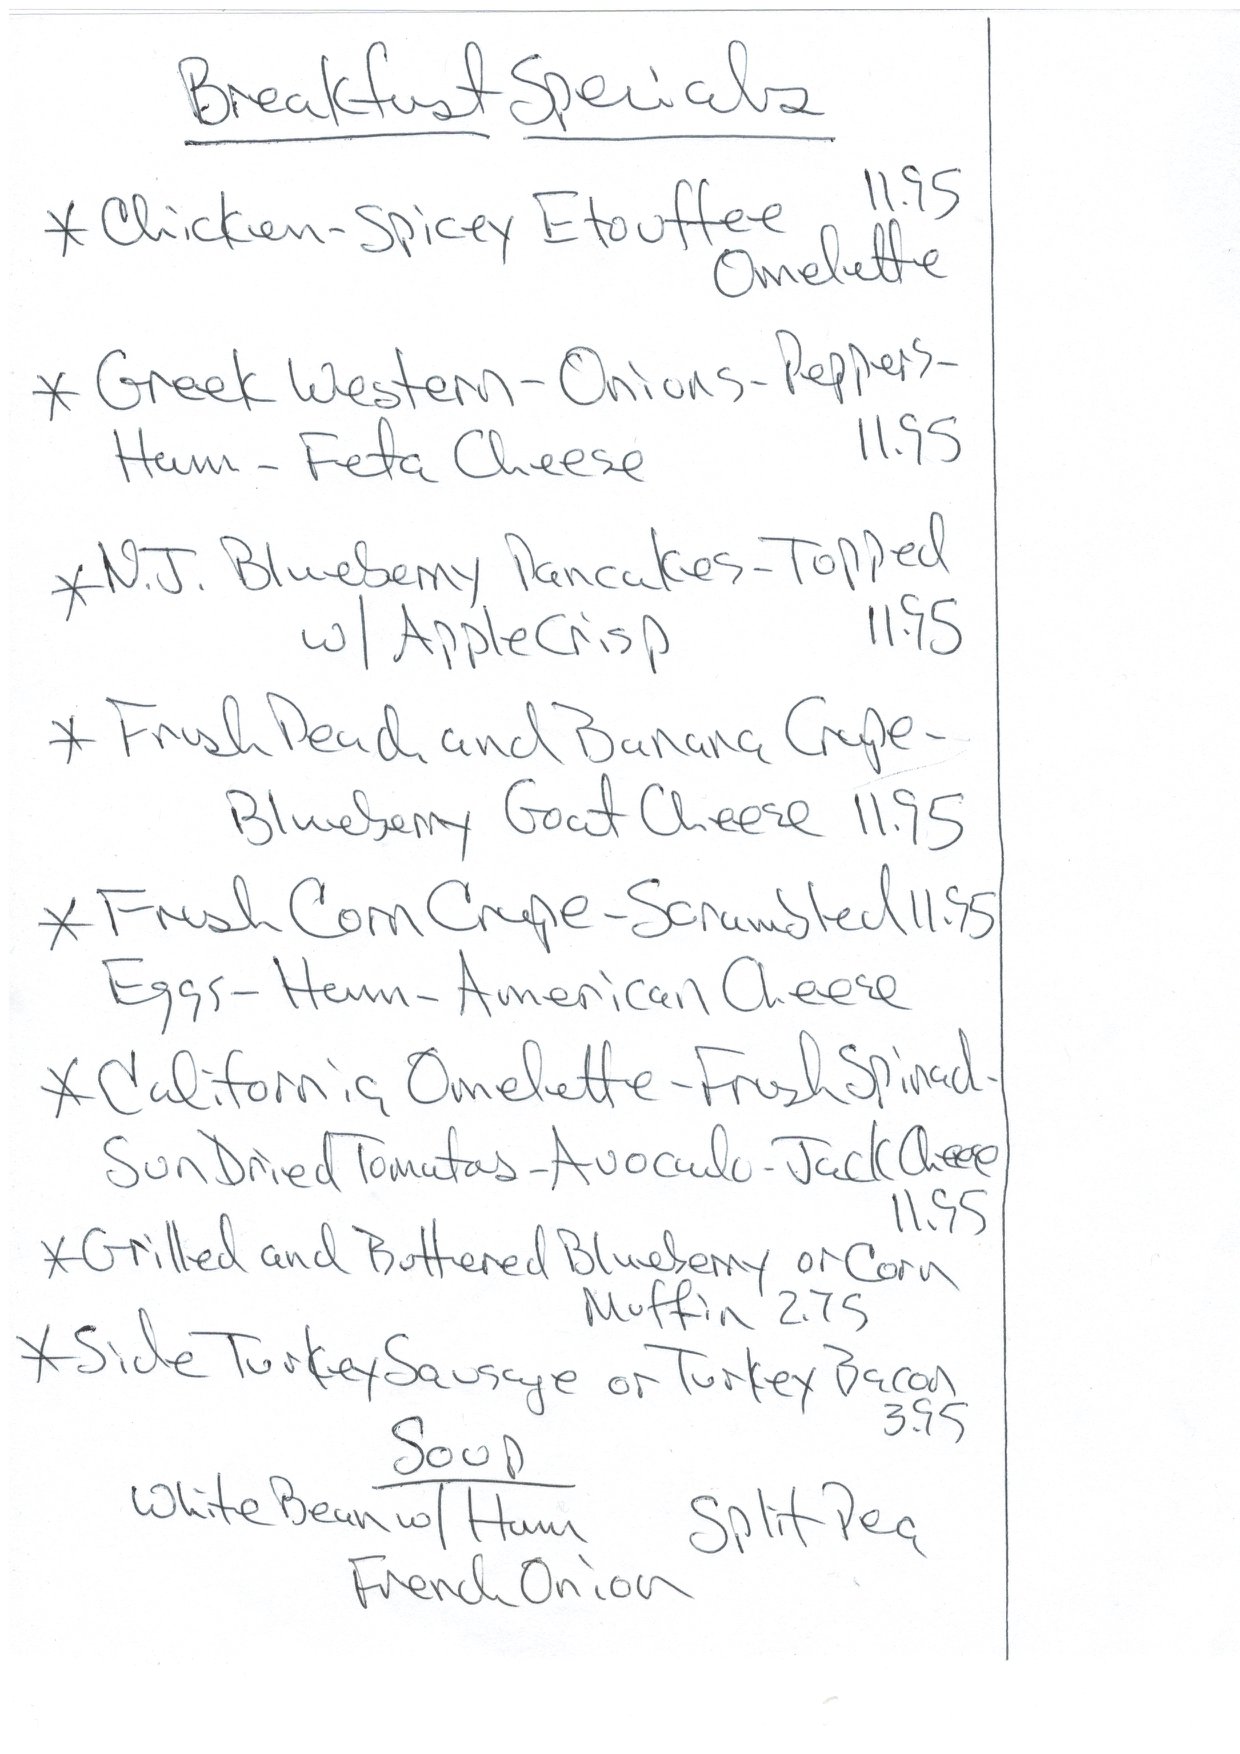 Breakfast Specials
* Chicken-Spicey Etouffee 11.95
Omelette
* Greek Western - Onions - Peppers -
Ham - Feta Cheese 11.95
* N.J. Blueberry Pancakes - Topped
w/ Apple Crisp 11.95
* Fresh Peach and Banana Crepe -
Blueberry Goat Cheese 11.95
* Fresh Corn Crepe - Scrambled 11.95
Eggs - Ham - American Cheese
* California Omelette - Fresh Spinach -
Sun Dried Tomatoes - Avocado - Jack Cheese
11.95
* Grilled and Buttered Blueberry or Corn
Muffin 2.75
* Side Turkey Sausage or Turkey Bacon
3.95
Soup
White Bean w/ Ham Split Pea
French Onion